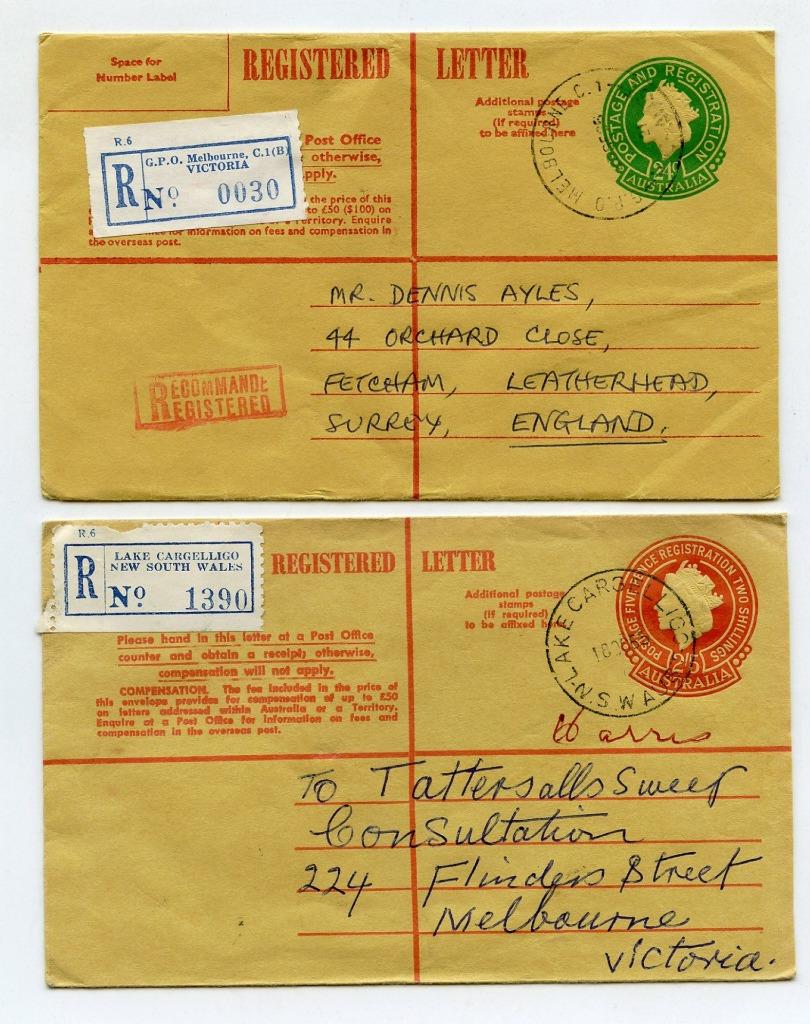 Space for
Number Label
REGISTERED LETTER
Additional postage
stamps
(if required)
to be affixed here
G.P.O MELBOURNE C.1
POSTAGE AND REGISTRATION
24
AUSTRALIA
R.6
R G.P.O. Melbourne, C.1(B)
VICTORIA
No 0030
Post Office
otherwise,
pply.
the price of this
to £50 ($100) on
rritory. Enquire
for information on fees and compensation in
the overseas post.
MR. DENNIS AYLES,
44 ORCHARD CLOSE,
FETCHAM, LEATHERHEAD,
SURREY, ENGLAND.
RECOMMANDE
REGISTERED
R.6
R LAKE CARGELLIGO
NEW SOUTH WALES
No 1390
REGISTERED LETTER
Additional postage
stamps
(if required)
to be affixed here
LAKE CARGELLIGO
N.S.W AUST
POSTAGE FIVEPENCE REGISTRATION TWO SHILLINGS
2/5
AUSTRALIA
Please hand in this letter at a Post Office
counter and obtain a receipt; otherwise,
compensation will not apply.
COMPENSATION. The fee included in the price of
this envelope provides for compensation of up to £50
on letters addressed within Australia or a Territory.
Enquire at a Post Office for information on fees and
compensation in the overseas post.
Harris
To Tattersalls Sweep
Consultation
224 Flinders Street
Melbourne
Victoria.